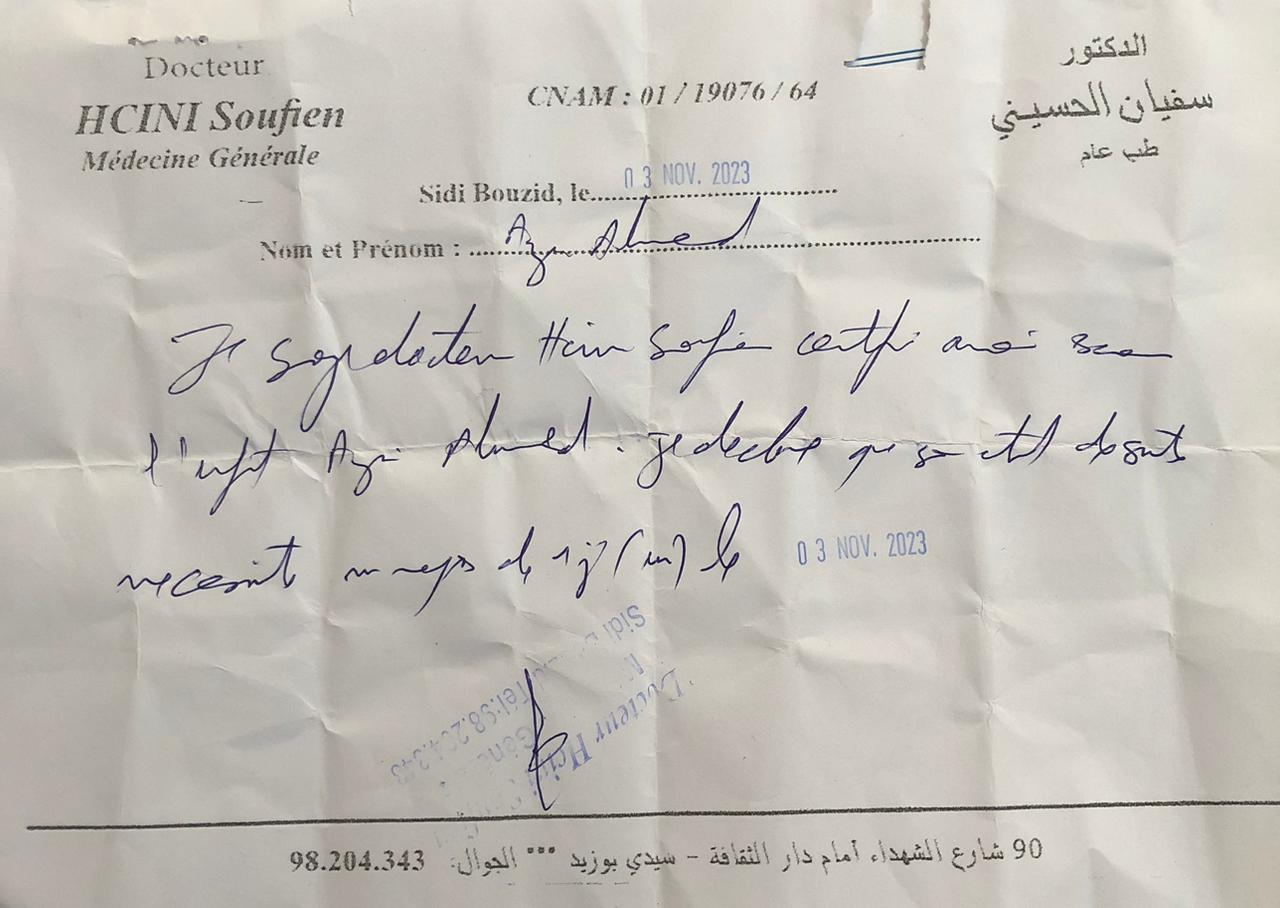 Docteur
HCINI Soufien
Médecine Générale
CNAM : 01 / 19076 / 64
الدكتور
سفيان الحسيني
طب عام
Sidi Bouzid, le 03 NOV. 2023
Nom et Prénom : Ahmed
Je docteur Hcini Soufien certifie avoir
l'enfant Ahmed . je declare que son etat de sante
necessite un repos de 1 j (un) le 03 NOV. 2023
Sidi
Docteur Hcini
Tel:98.204.343
90 شارع الشهداء أمام دار الثقافة - سيدي بوزيد *** الجوال: 98.204.343